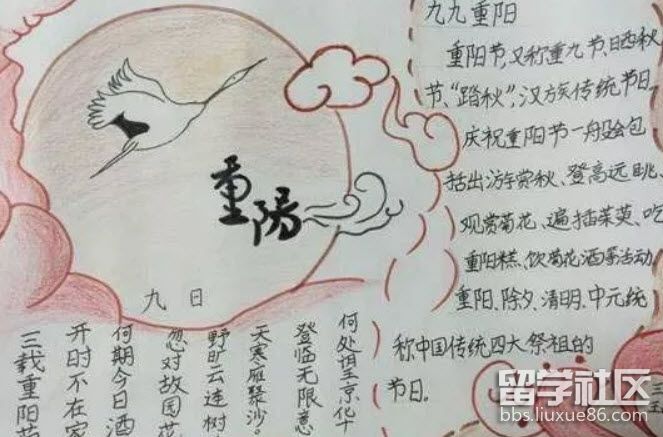 重陽
九日
三载重阳
开时不在家
何期今日酒
忽对故园花。
野旷云连树
天寒雁聚沙。
登临无限意
何处望京华
九九重阳
重阳节,又称重九节、晒秋
节、“踏秋”,汉族传统节日,
庆祝重阳节一般会包
括出游赏秋、登高远眺、
观赏菊花、遍插茱萸、吃
重阳糕、饮菊花酒等活动
重阳、除夕、清明、中元统
称中国传统四大祭祖的
节日.
留学社区
bbs.liuxue86.com